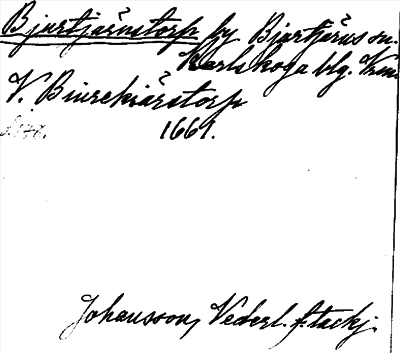 Bjurtjärnstorp by. Bjurtjärns sn.
Karlskoga blg. Vrml.
V. Biurekiärstorp
1669.
Johansson, Vederl. f. tackj.